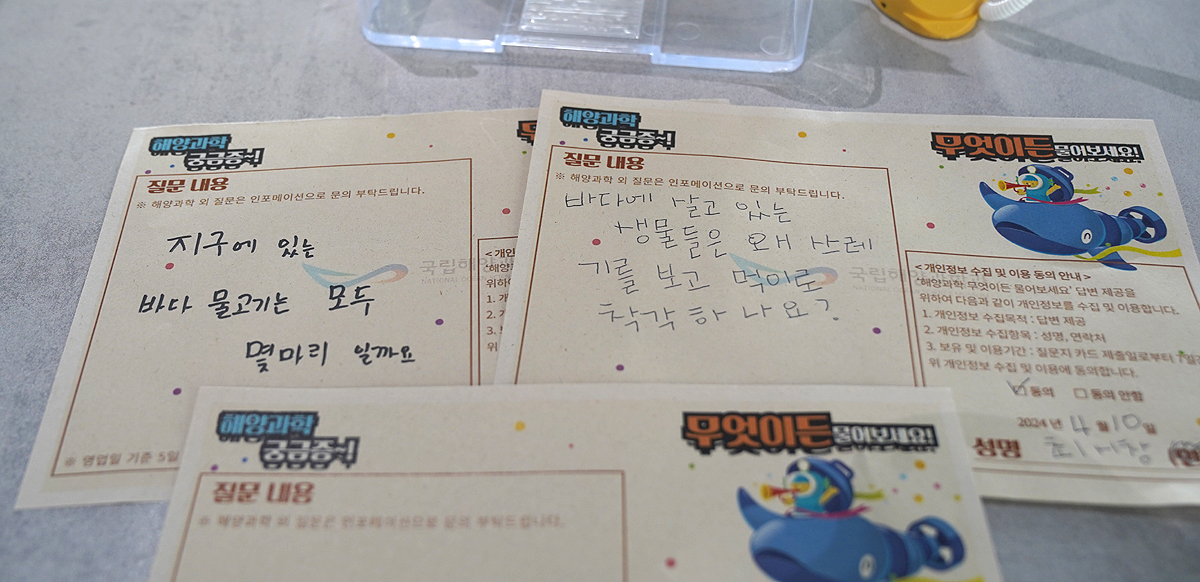 해양과학
궁금증식!
질문 내용
※ 해양과학 외 질문은 인포메이션으로 문의 부탁드립니다.
지구에 있는
바다 물고기는 모두
몇마리 일까요
국립해양
※ 영업일 기준 5일
< 개인
'해양
위하
1. 개
2. 개
3. 보
위
해양과학
궁금증식!
질문 내용
※ 해양과학 외 질문은 인포메이션으로 문의 부탁드립니다.
바다에 살고 있는
생물들은 왜 쓰레
기를 보고 먹이로
착각 하나요?
무엇이든 물어보세요!
< 개인정보 수집 및 이용 동의 안내 >
'해양과학 무엇이든 물어보세요' 답변 제공을
위하여 다음과 같이 개인정보를 수집 및 이용합니다.
1. 개인정보 수집목적 : 답변 제공
2. 개인정보 수집항목 : 성명, 연락처
3. 보유 및 이용기간 : 질문지 카드 제출일로부터
위 개인정보 수집 및 이용에 동의합니다.
동의 동의 안함
2024 년 4 월 10 일
성명
해양과학
궁금증식!
무엇이든 물어보세요!
질문 내용
※ 해양과학 외 질문은 인포메이션으로 문의 부탁드립니다.